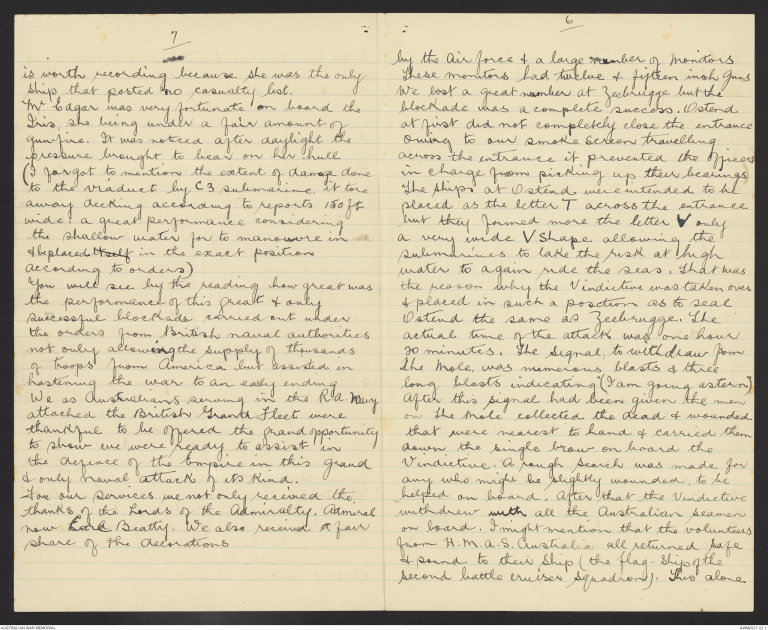 6
by the Air force & a large number of monitors
These monitors had twelve & fifteen inch Guns
We lost a great number at Zeebrugge but the
blockade was a complete success. Ostend
at first did not completely close the entrance
owing to our smoke screen travelling
across the entrance it prevented the officers
in charge from picking up their bearings
The ships at Ostend were intended to be
placed as the letter T across the entrance
but they formed more the letter V only
a very wide V shape allowing the
submarines to take the risk at high
water to again ride the seas. That was
the reason why the Vindictive was taken over
& placed in such a position as to seal
Ostend the same as Zeebrugge. The
actual time of the attack was one hour
20 minutes. The signal to withdraw from
the Mole, was numerous blasts & three
long blasts indicating (I am going astern)
After this signal had been given the men
on the Mole collected the dead & wounded
that were nearest to hand & carried them
down the single brow on board the
Vindictive. A rough search was made for
any who might be slightly wounded, to be
helped on board. After that the Vindictive
withdrew with all the Australian seamen
on board. I might mention that the volunteers
from H.M.A.S. Australia all returned safe
& sound to their ship (the flag-ship of the
second battle cruiser squadron). This alone
7
is worth recording because she was the only
ship that posted no casualty list.
Mr Edgar was very fortunate on board the
Iris, she being under a fair amount of
gun-fire. It was noticed after daylight the
pressure brought to bear on her hull
(I forgot to mention the extent of damage done
to the viaduct by C3 submarine. it tore
away decking according to reports 150 ft
wide. a great performance considering
the shallow water for to manouvre in
& be placed itself in the exact position
according to orders)
You will see by the reading how great was
the performance of this great & only
successful blockade carried out under
the orders from British naval authorities
not only allowing the supply of thousands
of troops from America but assisted in
hastening the war to an early ending
We as Australians serving in the R.A. Navy
attached the British Grand Fleet were
thankful to be offered the grand opportunity
to show we were ready to assist in
the defence of the Empire in this grand
& only naval attack of its kind.
For our services we not only received the
thanks of the Lords of the Admiralty. Admiral
now Earl Beatty. We also received a fair
share of the decorations
AUSTRALIAN WAR MEMORIAL